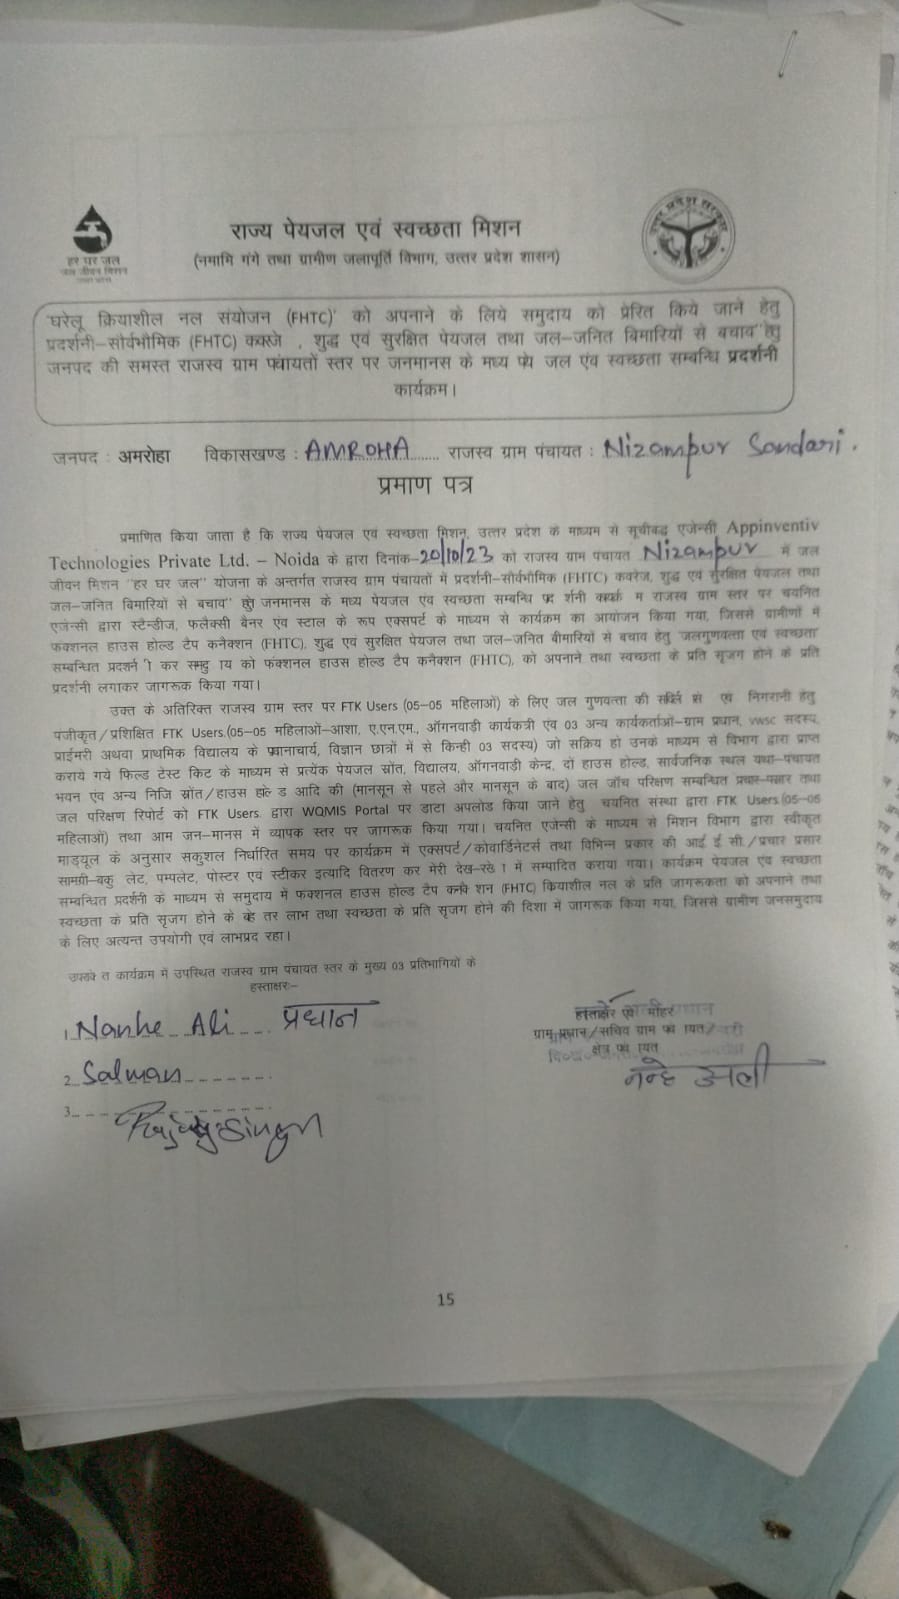 राज्य पेयजल एवं स्वच्छता मिशन
(नमामि गंगे तथा ग्रामीण जलापूर्ति विभाग, उत्तर प्रदेश शासन)
हर घर जल
जल जीवन मिशन
उत्तर प्रदेश सरकार
'घरेलू क्रियाशील नल संयोजन (FHTC)' को अपनाने के लिये समुदाय को प्रेरित किये जाने हेतु
प्रदर्शनी–सौर्वभौमिक (FHTC) कवरेज , शुद्ध एवं सुरक्षित पेयजल तथा जल–जनित बिमारियों से बचाव" हेतु
जनपद की समस्त राजस्व ग्राम पंचायतों स्तर पर जनमानस के मध्य पेय जल एंव स्वच्छता सम्बन्धि प्रदर्शनी
कार्यक्रम।
जनपद : अमरोहा विकासखण्ड : AMROHA राजस्व ग्राम पंचायत : Nizampur Sondari.
प्रमाण पत्र
प्रमाणित किया जाता है कि राज्य पेयजल एवं स्वच्छता मिशन, उत्तर प्रदेश के माध्यम से सूचीबद्ध एजेन्सी Appinventiv
Technologies Private Ltd. – Noida के द्वारा दिनांक–20/10/23 को राजस्व ग्राम पंचायत Nizampur में जल
जीवन मिशन "हर घर जल" योजना के अन्तर्गत राजस्व ग्राम पंचायतों में प्रदर्शनी–सौर्वभौमिक (FHTC) कवरेज, शुद्ध एवं सुरक्षित पेयजल तथा
जल–जनित बिमारियों से बचाव" हेतु जनमानस के मध्य पेयजल एंव स्वच्छता सम्बन्धि प्रदर्शनी म राजस्व ग्राम स्तर पर चयनित
एजेन्सी द्वारा स्टैन्डीज, फलैक्सी बैनर एंव स्टाल के रूप एक्सपर्ट के माध्यम से कार्यक्रम का आयोजन किया गया, जिससे ग्रामीणों में
फक्शनल हाउस होल्ड टैप कनैक्शन (FHTC), शुद्ध एवं सुरक्षित पेयजल तथा जल–जनित बीमारियों से बचाव हेतु 'जलगुणवत्ता एवं स्वच्छता'
सम्बन्धित प्रदर्शनी कर समुदाय को फंक्शनल हाउस होल्ड टैप कनैक्शन (FHTC), को अपनाने तथा स्वच्छता के प्रति सृजग होने के प्रति
प्रदर्शनी लगाकर जागरूक किया गया।
उक्त के अतिरिक्त राजस्व ग्राम स्तर पर FTK Users (05–05 महिलाओं) के लिए जल गुणवत्ता की एवं निगरानी हेतु
पजीकृत/प्रशिक्षित FTK Users.(05–05 महिलाओं–आशा, ए.एन.एम., ऑगनवाड़ी कार्यकत्री एंव 03 अन्य कार्यकर्ताओं–ग्राम प्रधान, vwsc सदस्य,
प्राईमरी अथवा प्राथमिक विद्यालय के प्रधानाचार्य, विज्ञान छात्रों में से किन्ही 03 सदस्य) जो सक्रिय हो उनके माध्यम से विभाग द्वारा प्राप्त
कराये गये फिल्ड टेस्ट किट के माध्यम से प्रत्येक पेयजल स्रोंत, विद्यालय, ऑगनवाड़ी केन्द्र, दो हाउस होल्ड, सार्वजनिक स्थल यथा–पंचायत
भवन एंव अन्य निजि स्रोंत/हाउस होल्ड आदि की (मानसून से पहले और मानसून के बाद) जल जाँच परिक्षण सम्बन्धित प्रचार–प्रसार तथा
जल परिक्षण रिपोर्ट को FTK Users. द्वारा WQMIS Portal पर डाटा अपलोड किया जाने हेतु चयनित संस्था द्वारा FTK Users.(05–05
महिलाओं) तथा आम जन–मानस में व्यापक स्तर पर जागरूक किया गया। चयनित एजेन्सी के माध्यम से मिशन विभाग द्वारा स्वीकृत
माड्यूल के अनुसार सकुशल निर्धारित समय पर कार्यक्रम में एक्सपर्ट/कोवार्डिनेटर्स तथा विभिन्न प्रकार की आई ई सी/प्रचार प्रसार
सामग्री–बकुलेट, पम्पलेट, पोस्टर एवं स्टीकर इत्यादि वितरण कर मेरी देख–रेख में सम्पादित कराया गया। कार्यक्रम पेयजल एंव स्वच्छता
सम्बन्धित प्रदर्शनी के माध्यम से समुदाय में फक्शनल हाउस होल्ड टैप कनैक्शन (FHTC) कियाशील नल के प्रति जागरूकता को अपनाने तथा
स्वच्छता के प्रति सृजग होने के बेहतर लाभ तथा स्वच्छता के प्रति सृजग होने की दिशा में जागरूक किया गया, जिससे ग्रामीण जनसमुदाय
के लिए अत्यन्त उपयोगी एवं लाभप्रद रहा।
उपरोक्त कार्यक्रम में उपस्थित राजस्व ग्राम पंचायत स्तर के मुख्य 03 प्रतिभागियों के
हस्ताक्षरः–
1. Nanhe Ali प्रधान
2. Salman
3.
हस्ताक्षर एवं मोहर
ग्राम प्रधान/सचिव ग्राम पंचायत/
क्षेत्र पंचायत
नन्हे अली
15